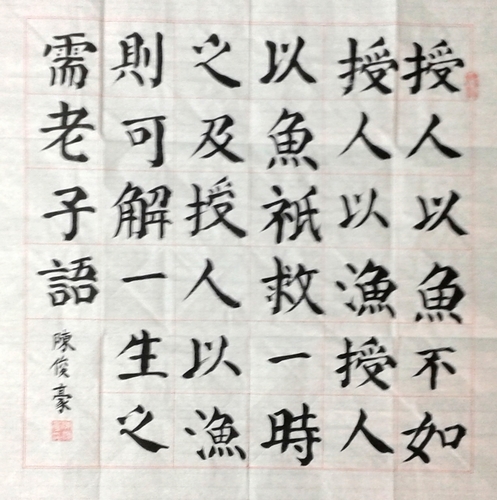 授人以魚不如
授人以漁授人
以魚祇救一時
之及授人以漁
則可解一生之
需老子語
陳俊豪